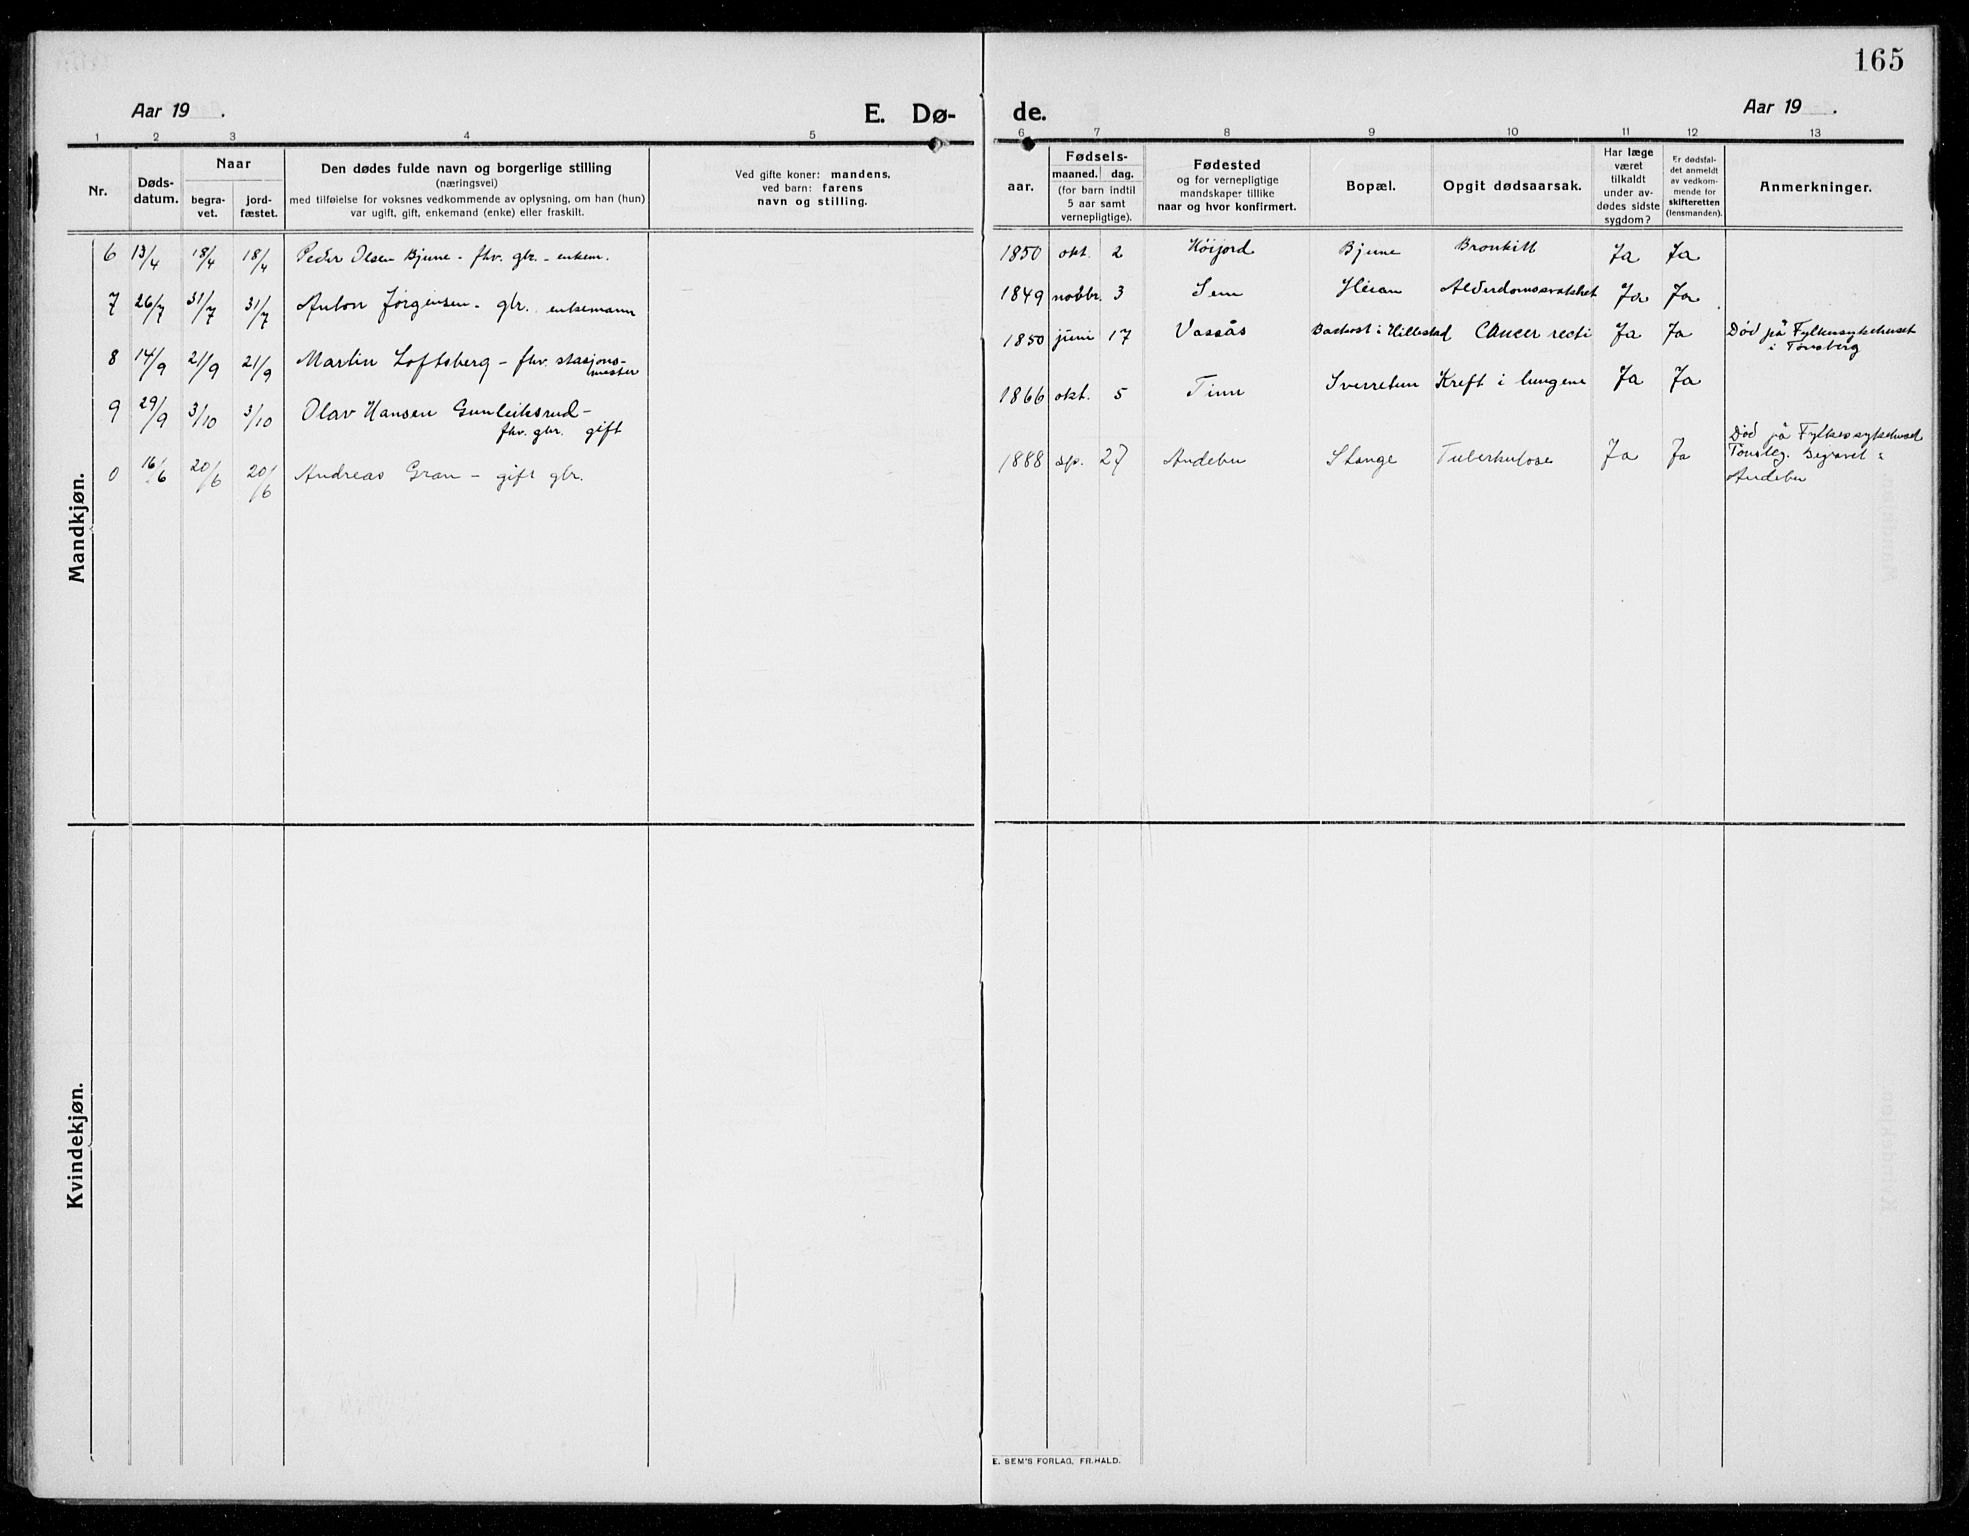 165
Aar 19 .
E. Dø-
de.
Aar 19 .
1 2 3 4 5 6 7 8 9 10 11 12 13
Nr.
Døds-
datum.
Naar
begra-
vet.
jord-
fæstet.
Den dødes fulde navn og borgerlige stilling
(næringsvei)
med tilføielse for voksnes vedkommende av oplysning, om han (hun)
var ugift, gift, enkemand (enke) eller fraskilt.
Ved gifte koner: mandens.
ved barn: farens
navn og stilling.
aar.
Fødsels-
maaned. dag.
(for barn indtil
5 aar samt
vernepligtige).
Fødested
og for vernepligtige
mandskaper tillike
naar og hvor konfirmert.
Bopæl.
Opgit dødsaarsak.
Har læge
været
tilkaldt
under av-
dødes sidste
sygdom?
Er dødsfal-
det anmeldt
av vedkom-
mende for
skifteretten
(lensmanden).
Anmerkninger.
Mandkjøn.
6 13/4 18/4 18/4 Peder Olsen Bjune - fhv. gbr. - enkem. 1850 okt. 2 Höijord Bjune Bronkitt Ja Ja
7 26/7 31/7 31/7 Anton Jörgensen - gbr. enkemann 1849 novbr. 3 Sem Heian Alderdomssvakhet Ja Ja
8 14/9 21/9 21/9 Martin Loftsberg - fhv. stasjons-
mester 1850 juni 17 Vassås i Hillestad Cancer recti Ja Ja Död på Fylkessykehuset
i Tönsberg
9 29/9 3/10 3/10 Olav Hansen Gunleiksrud -
fhv. gbr. gift 1866 okt. 5 Tinn Sverretun Kreft i lungene Ja Ja
0 16/6 20/6 20/6 Andreas Gran - gift gbr. 1888 sp. 27 Andebu Stange Tuberkulose Ja Ja Död på Fylkessykehuset
Tönsbg. Begravet i
Andebu
Kvindekjøn.
E. SEM'S FORLAG, FR.HALD.